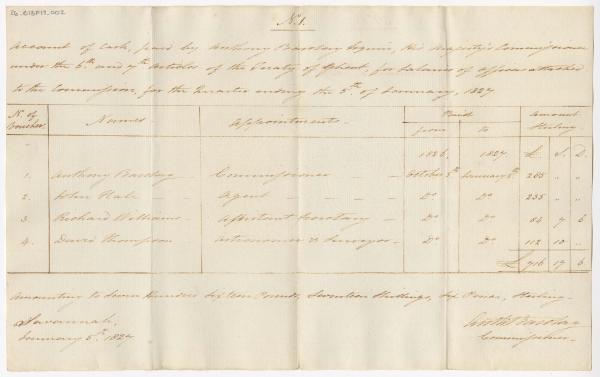 No. 1.
Account of Cash, paid by Anthony Barclay Esquire, His Majesty's Commissioner
under the 6th and 7th Articles of the Treaty of Ghent, for Salaries of officers attached
to the Commission, for the Quarter ending the 5th of January, 1827
No. of Voucher. Names Appointments Paid from to Amount Sterling
1826. 1827 £ S. D.
1. Anthony Barclay Commissioner October 5th January 5th " "
2. John Hale Agent Do Do " "
3. Richard Williams Assistant Secretary Do Do 84 7 6
4. David Thompson Astronomer & Surveyor Do Do 112 10 "
£ 716 17 6
Amounting to Seven Hundred Sixteen Pounds, Seventeen Shillings, Six Pence, Sterling
Savannah,
January 5th 1827
Anth Barclay
Commissioner